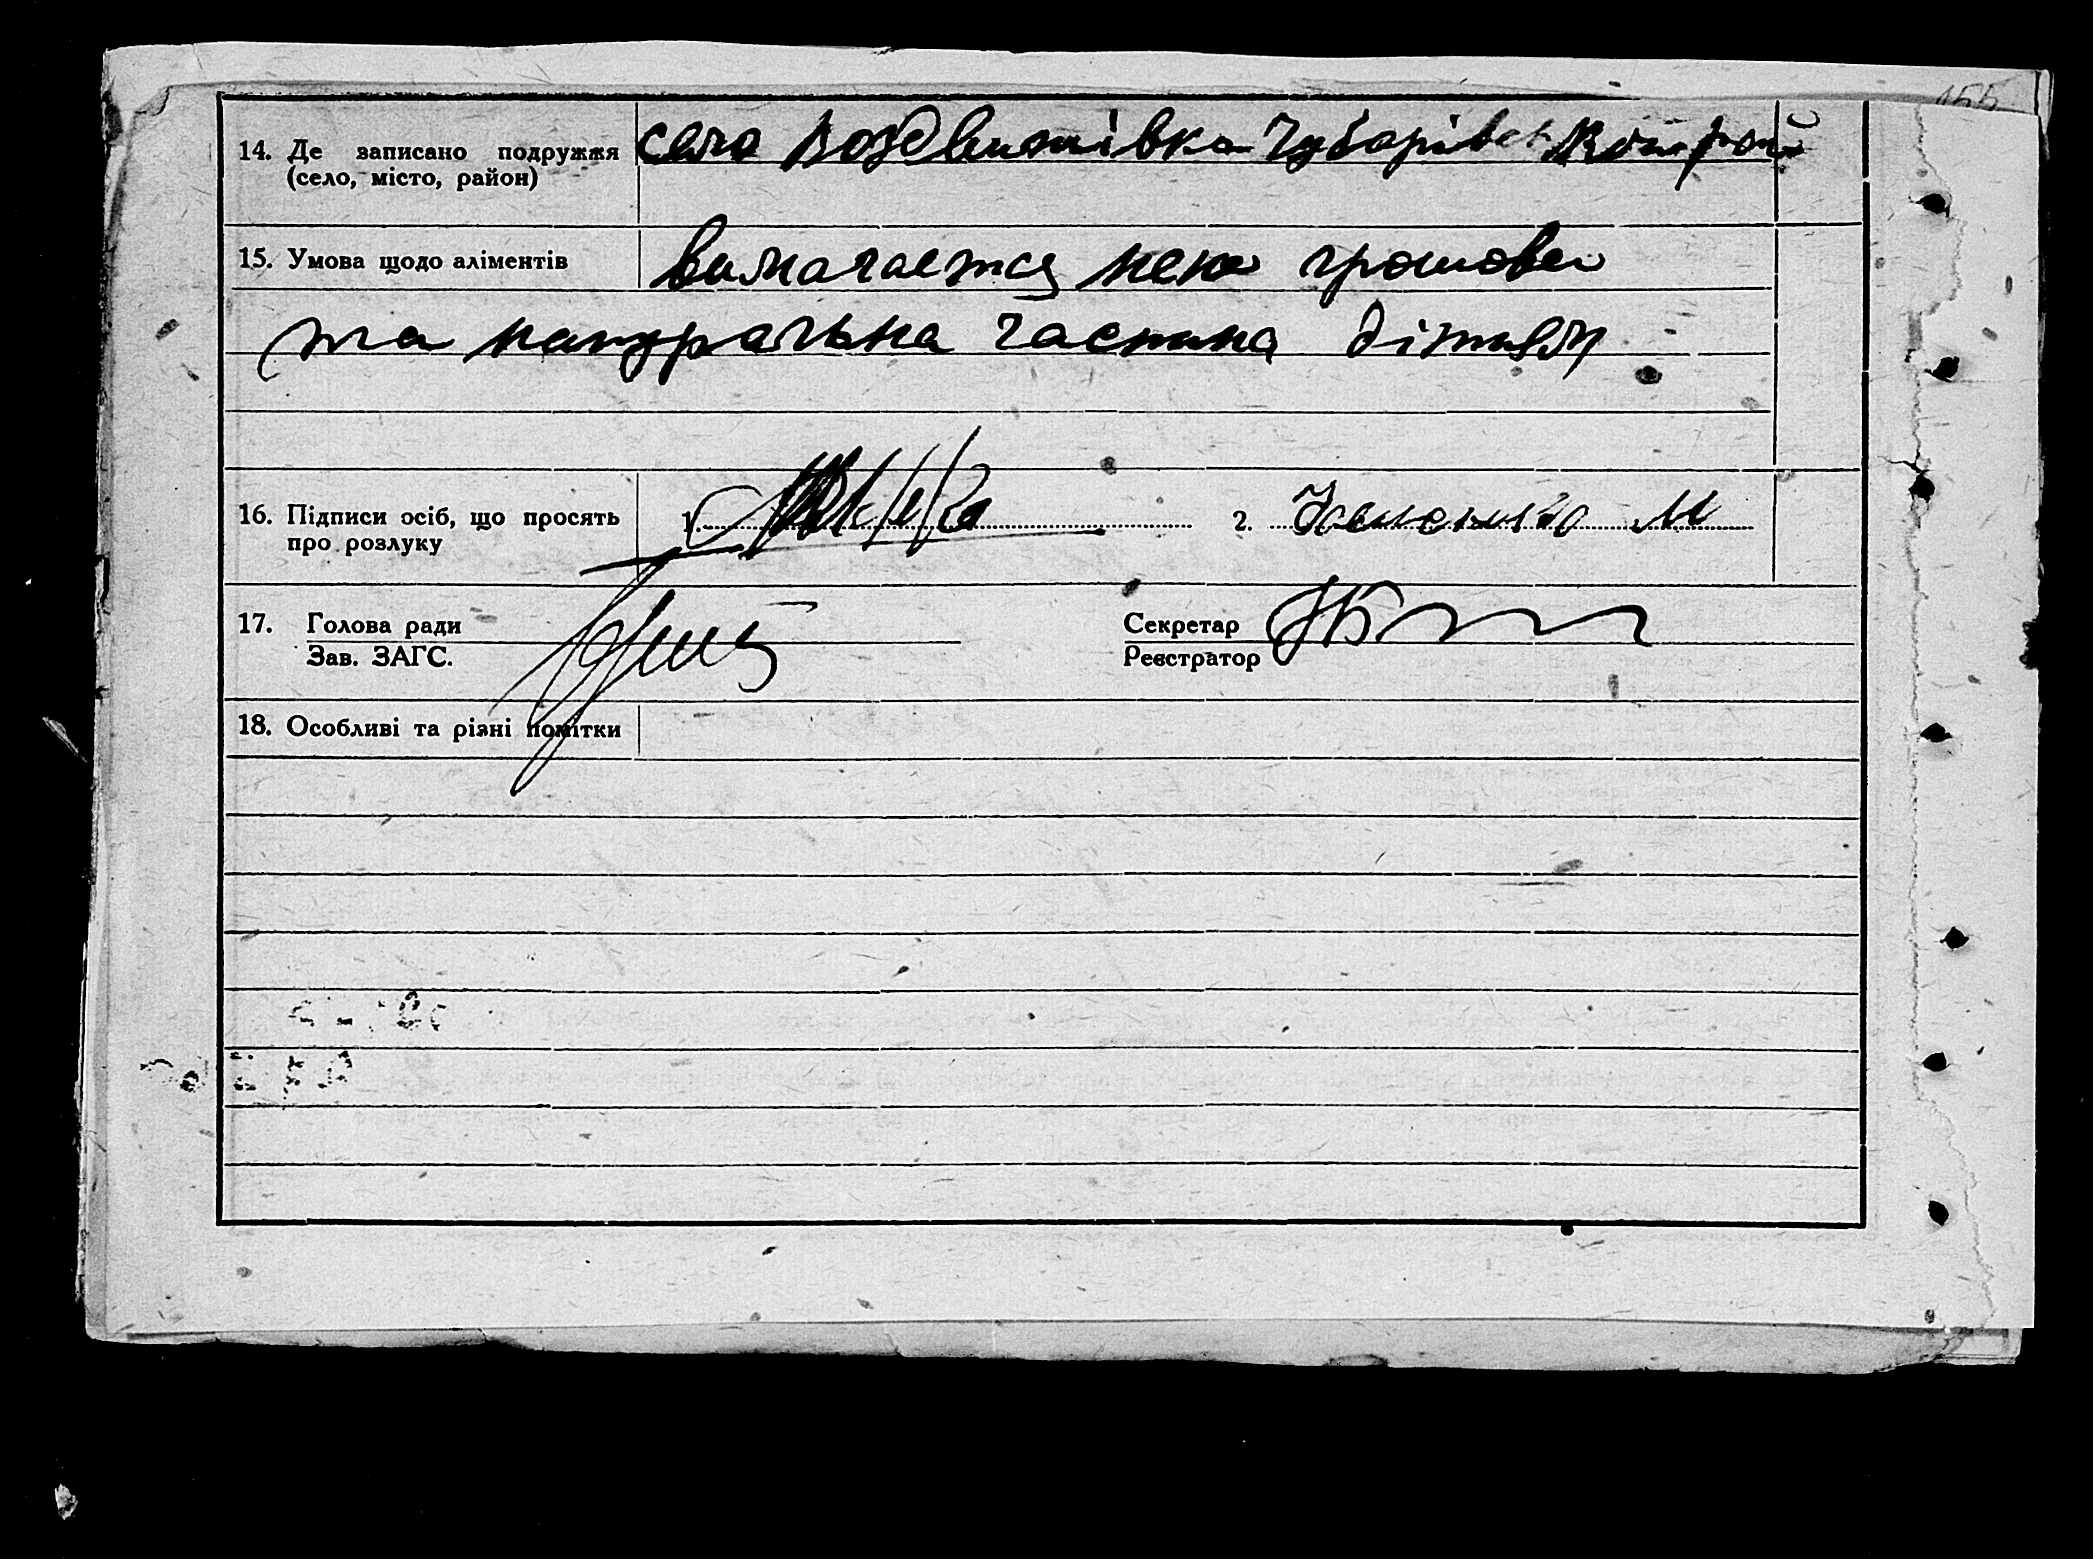 155
14. Де записано подружжя село Воздвижівка Чубарівськ район
(село, місто, район)
15. Умова щодо аліментів вимагається нею грошова
та натуральна частина дітям
16. Підписи осіб, що просять 1. 2. М
про розлуку
17. Голова ради Секретар
Зав. ЗАГС. Реєстратор
18. Особливі та різні помітки